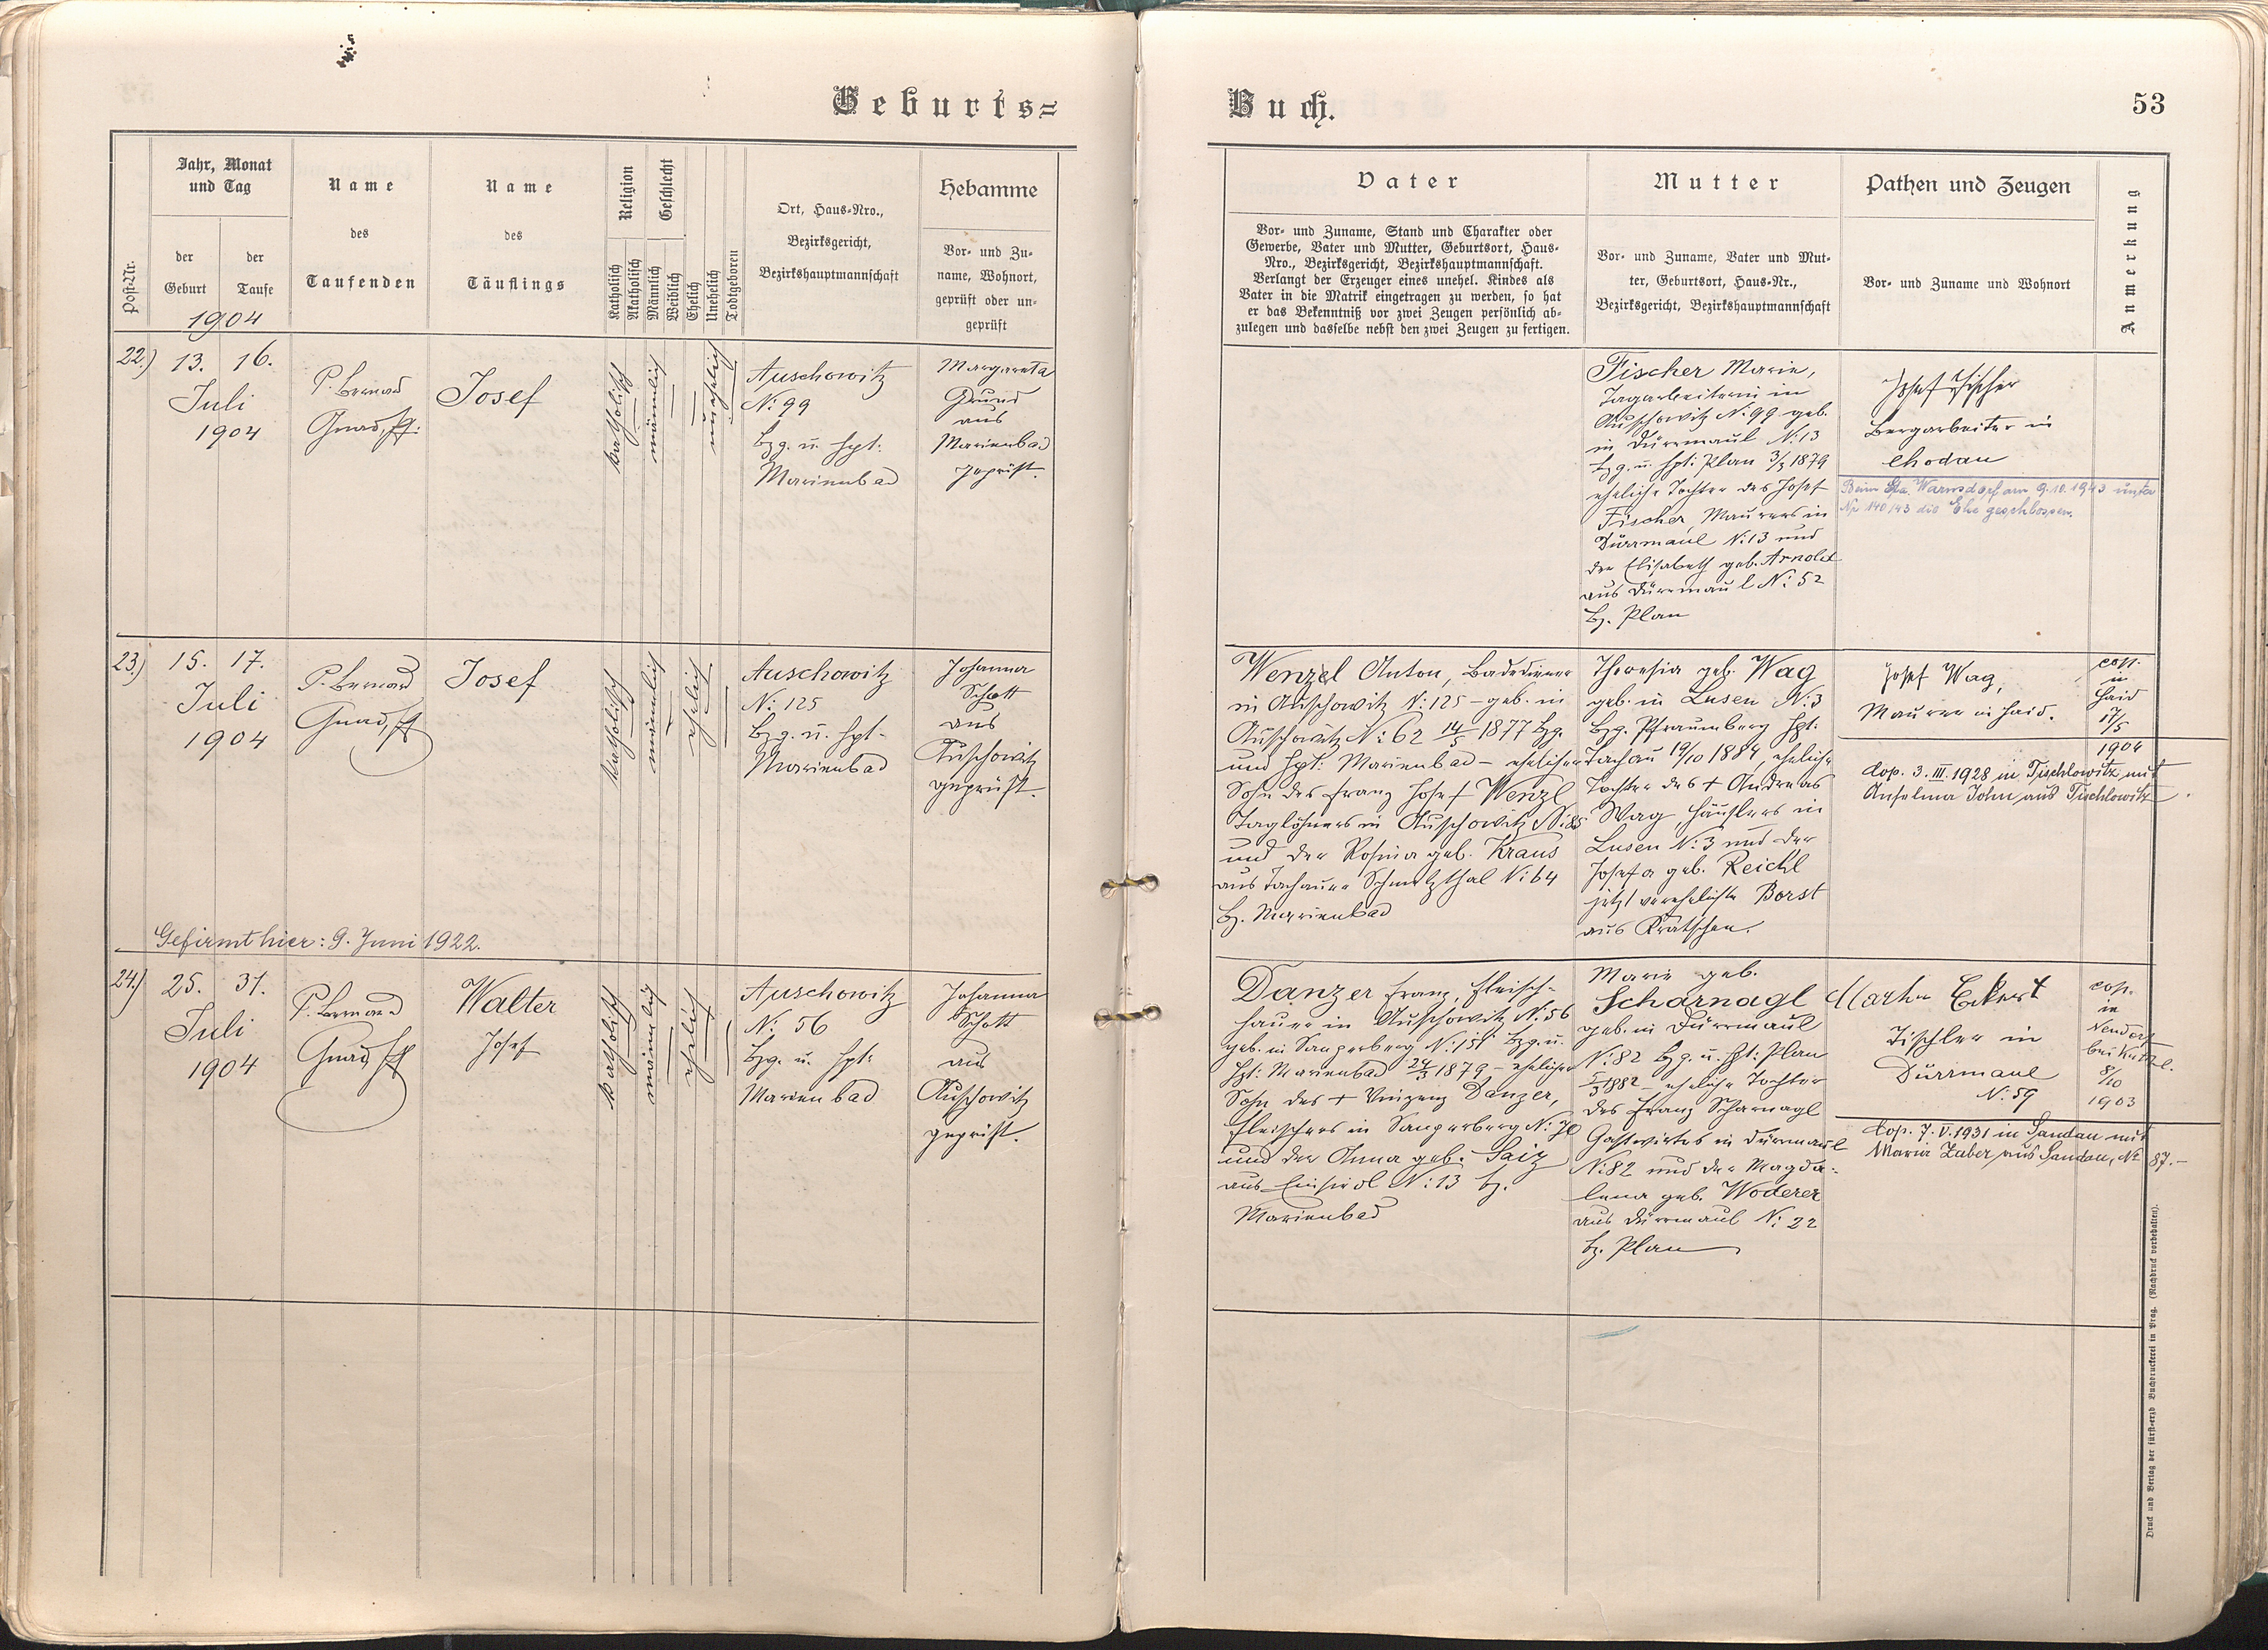 Geburts=
Jahr, Monat
und Tag
Post-Nr.
der
Geburt
der
Taufe
1904
Name
des
Taufenden
Name
des
Täuflings
Religion
Katholisch
Akatholisch
Geschlecht
Männlich
Weiblich
Ehelich
Unehelich
Todtgeboren
Ort, Haus-Nro.,
Bezirksgericht,
Bezirkshauptmannschaft
Hebamme
Vor- und Zu-
name, Wohnort,
geprüft oder un-
geprüft
22.)
13. 16.
Juli
1904
P. Bernard
Gnad,
Josef
katholisch
männlich
unehelich
Auschowitz
N: 99
Bzg. u. Hpt:
Marienbad
Margareta
Grund
aus
Marienbad
geprüft.
23.)
15. 17.
Juli
1904
P. Bernard
Gnad,
Josef
katholisch
männlich
ehelich
Auschowitz
N: 125
Bzg. u. Hpt-
Marienbad
Johanna
Schott
aus
Auschowitz
geprüft.
Gefirmt hier: 9. Juni 1922.
24.)
25. 31.
Juli
1904
P. Bernard
Gnad,
Walter
Josef
katholisch
männlich
ehelich
Auschowitz
N: 56
Bzg. u. Hpt:
Marienbad
Johanna
Schott
aus
Auschowitz
geprüft.
Buch.
53
Vater
Vor- und Zuname, Stand und Charakter oder
Gewerbe, Vater und Mutter, Geburtsort, Haus-
Nro., Bezirksgericht, Bezirkshauptmannschaft.
Verlangt der Erzeuger eines unehel. Kindes als
Vater in die Matrik eingetragen zu werden, so hat
er das Bekenntniß vor zwei Zeugen persönlich ab-
zulegen und dasselbe nebst den zwei Zeugen zu fertigen.
Mutter
Vor- und Zuname, Vater und Mut-
ter, Geburtsort, Haus-Nr.,
Bezirksgericht, Bezirkshauptmannschaft
Pathen und Zeugen
Vor- und Zuname und Wohnort
Anmerkung
Fischer Marie,
Tagarbeiterin in
Auschowitz N: 99 geb.
in Dürrmaul N: 13
Bzg. u. Hpt: Plan 3/3 1879
eheliche Tochter des Josef
Fischer, Maurers in
Dürrmaul N: 13 und
der Elisabeth geb. Arnold
aus Dürrmaul N: 52
Bz. Plan
Josef Fischer
Bergarbeiter in
Chodau
Beim Sta. Warnsdorf am 9.10.1943 unter
Nr 140/43 die Ehe geschlossen.
Wenzel Anton, Badediener
in Auschowitz N: 125 - geb. in
Auschowitz N: 62 14/5 1877 Bzg.
und Hpt: Marienbad - ehelicher
Sohn des Franz Josef Wenzl
Taglöhners in Auschowitz N: 85
und der Rosina geb. Kraus
aus Tachauer Schmelzthal N: 64
Bz. Marienbad
Theresia geb. Wag
geb. in Lusen N: 3
Bzg. Pfraumberg Hpt:
Tachau 19/10 1884, eheliche
Tochter des + Andreas
Wag Häuslers in
Lusen N: 3 und der
Josefa geb. Reichl
jetzt verehelichte Borst
aus Kratschen.
Josef Wag,
Maurer in Haid.
cop.
in
Haid
17/5
1904
Cop. 3. III. 1928 in Tischlowitz mit
Anselma John aus Tischlowitz.
Danzer Franz, Fleisch-
hauer in Auschowitz N: 56
geb. in Sangerberg N: 151 Bzg. u.
Hpt: Marienbad 24/3 1879 - ehelicher
Sohn des + Vinzenz Danzer,
Fleischers in Sangerberg N: 70
und der Anna geb. Saiz
aus Einsiedl N: 13 Bz.
Marienbad
Marie geb.
Scharnagl
geb. in Dürrmaul
N: 82 Bzg. u. Hpt: Plan
5/3 1882 - eheliche Tochter
des Franz Scharnagl
Gastwirtes in Dürrmaul
N: 82 und der Magda-
lena geb. Woderer
aus Dürrmaul N: 22
Bz. Plan
Eckert
Tischler in
Dürrmaul
N: 59
cop.
in
Neudorf
bei
8/10
1903
Cop. 7. V. 1931 in Sandau mit
Maria Zuber aus Sandau, No 87.-
Druck und Verlag der fürst-erzb Buchdruckerei in Prag. (Nachdruck vorbehalten).